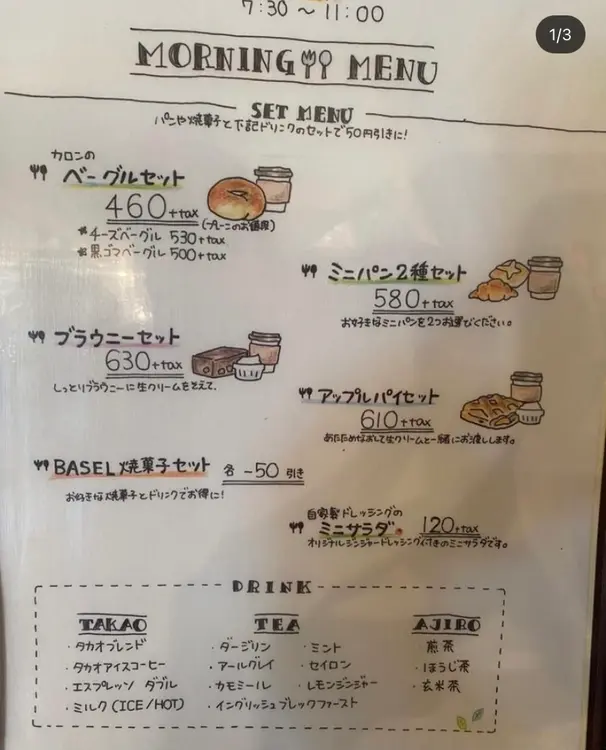 7:30 ～ 11:00
1/3
MORNING MENU
SET MENU
パンや焼菓子と下記ドリンクのセットで50円引きに!
カロンの
ベーグルセット
460+tax
(プレーンのお値段)
*チーズベーグル 530+tax
*黒ゴマベーグル 500+tax
ミニパン2種セット
580+tax
お好きなミニパンを2つお選びください。
ブラウニーセット
630+tax
しっとりブラウニーに生クリームをそえて。
アップルパイセット
610+tax
あたためなおして生クリームと一緒にお渡しします。
BASEL焼菓子セット 各 ~50 引き
お好きな焼菓子とドリンクでお得に!
自家製ドレッシングの
ミニサラダ 120+tax
オリジナルジンジャードレッシング付きのミニサラダです。
DRINK
TAKAO
・タカオブレンド
・タカオアイスコーヒー
・エスプレッソ ダブル
・ミルク(ICE/HOT)
TEA
・ダージリン ・ミント
・アールグレイ ・セイロン
・カモミール ・レモンジンジャー
・イングリッシュブレックファースト
AJIRO
煎茶
・ほうじ茶
・玄米茶